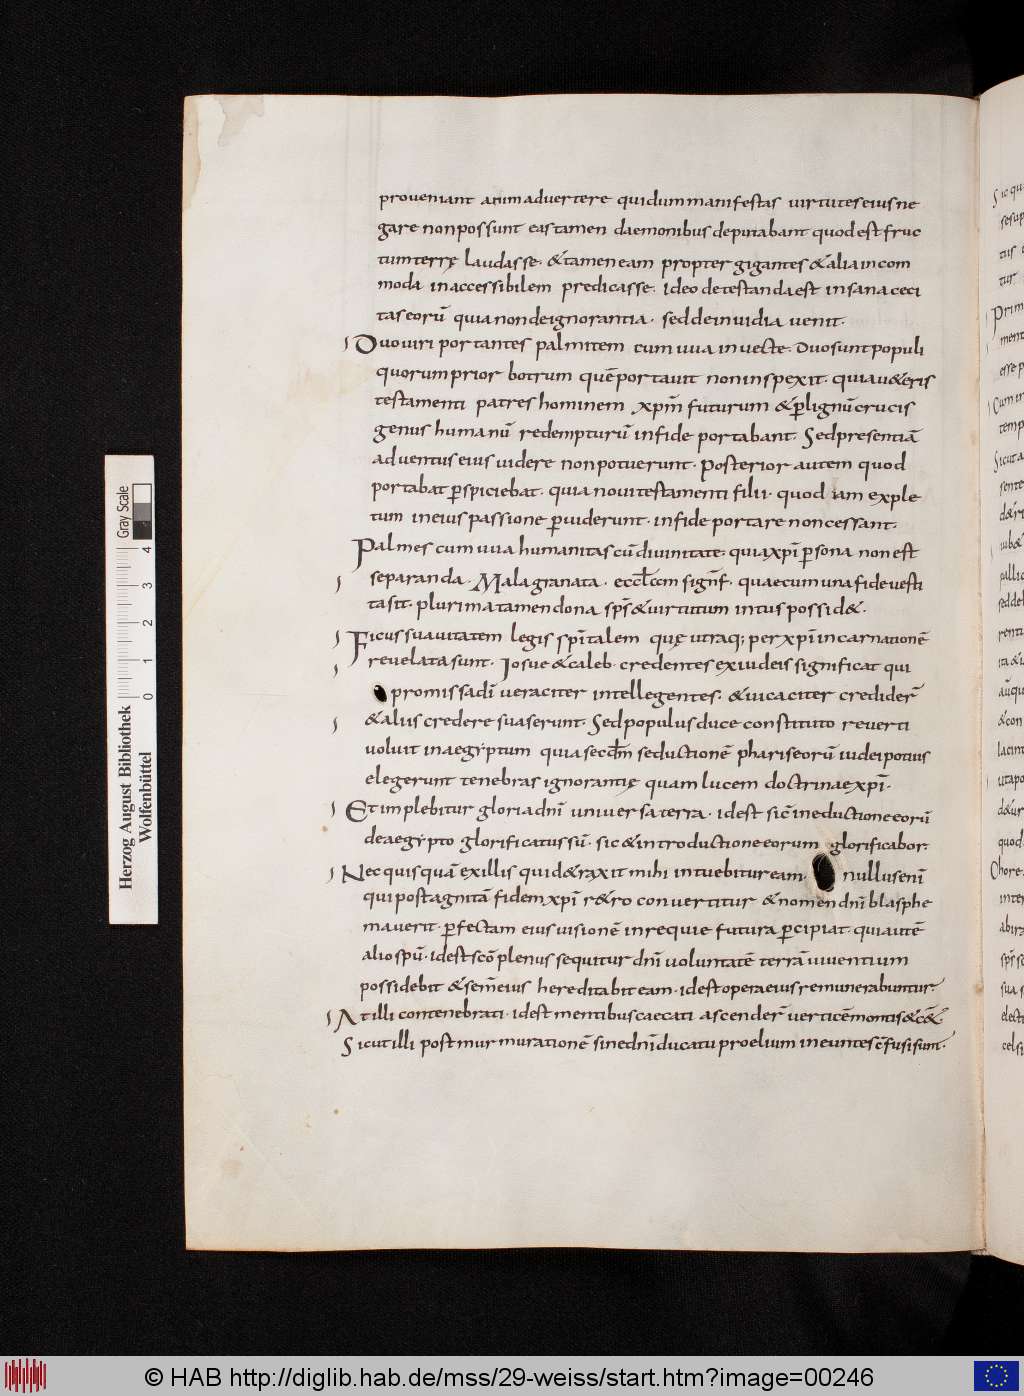 proveniant animadvertere quidum manifestas virtutes eius ne
gare non possunt eas tamen daemonibus deputabant quod est fruc
tum terrę laudasse. & tamen eam propter gigantes & alia incom
moda inaccessibilem predicasse. Ideo detestanda est insana ceci
tas eorū quia non de ignorantia. sed de invidia venit.
Duo viri portantes palmitem cum uva in vecte. Duo sunt populi
quorum prior botrum quē portavit non inspexit. quia u&eris
testamenti patres hominem xpm̄ futurum & p̲ lignū crucis
genus humanū redempturū in fide portabant. Sed presentiā
adventus eius videre non potuerunt. Posterior autem quod
portabat p̲spiciebat. quia novi testamenti filii. quod iam exple
tum in eius passione p̲viderunt. in fide portare non cessant.
Palmes cum uva humanitas cū divinitate. quia xpī p̲sona non est
separanda. Malagranata. ecclām signf̄. quae cum una fide vesti
ta sit. plurima tamen dona sps̄ & virtutum intus possid&.
Ficus suavitatem legis spītalem quę utraq; per xpī incarnationē
revelata sunt. Iosue & caleb credentes ex iudeis significat qui
promissa dnī veraciter intellegentes. & vicaciter credider̄
& aliis credere suaserunt. Sed populus duce constituto reverti
voluit in aegyptum quia secdm̄ seductionē phariseorū iudei potius
elegerunt tenebras ignorantię quam lucem doctrinae xpī.
Et implebitur gloria dnī universa terra. id est sic̄ in eductione eorū
de aegypto glorificatus sū. sic & introductione eorum glorificabor.
Nec quisquā ex illis qui d&raxit mihi intuebitur eam. nullus enī
qui post agnitā fidem xpī r&ro convertitur & nomen dnī blasphe
maverit. p̲fectam eius visionē in requie futura p̲cipiat. qui autē
alio spū. id est scō plenus sequitur dnī voluntatē terrā viventium
possidebit & sem̄ eius hereditabit eam. id est opera eius remunerabuntur.
At illi contenebrati. id est mentibus caecati ascender̄ verticē montis &c&.
Sicut illi post murmurationē sine dnī ducatu proelium ineuntes c̄fusi sunt.
Herzog August Bibliothek
Wolfenbüttel
0 1 2 3 4
Gray Scale
© HAB http://diglib.hab.de/mss/29-weiss/start.htm?image=00246